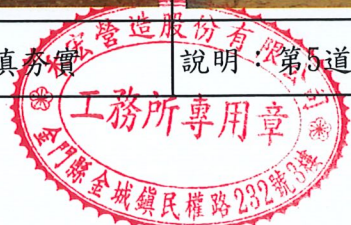 填夯實
說明：第5道
宏營造股份有限公司
工務所專用章
金門縣金城鎮民權路232號3樓